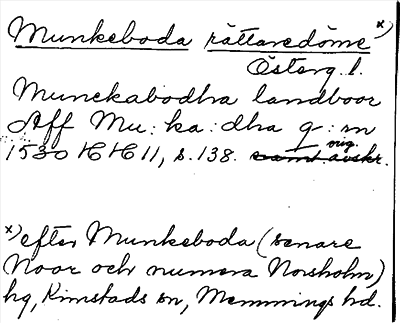 Munkeboda rättaredöme x)
Österg. l.
Munckabodha landboor
Aff Mu: ka: dha g: m
1530 HH 11, s. 138. samt avskr. orig.
x) efter Munkeboda (senare
Noor och numera Norsholm)
hg, Kimstads sn, Memmings hd.